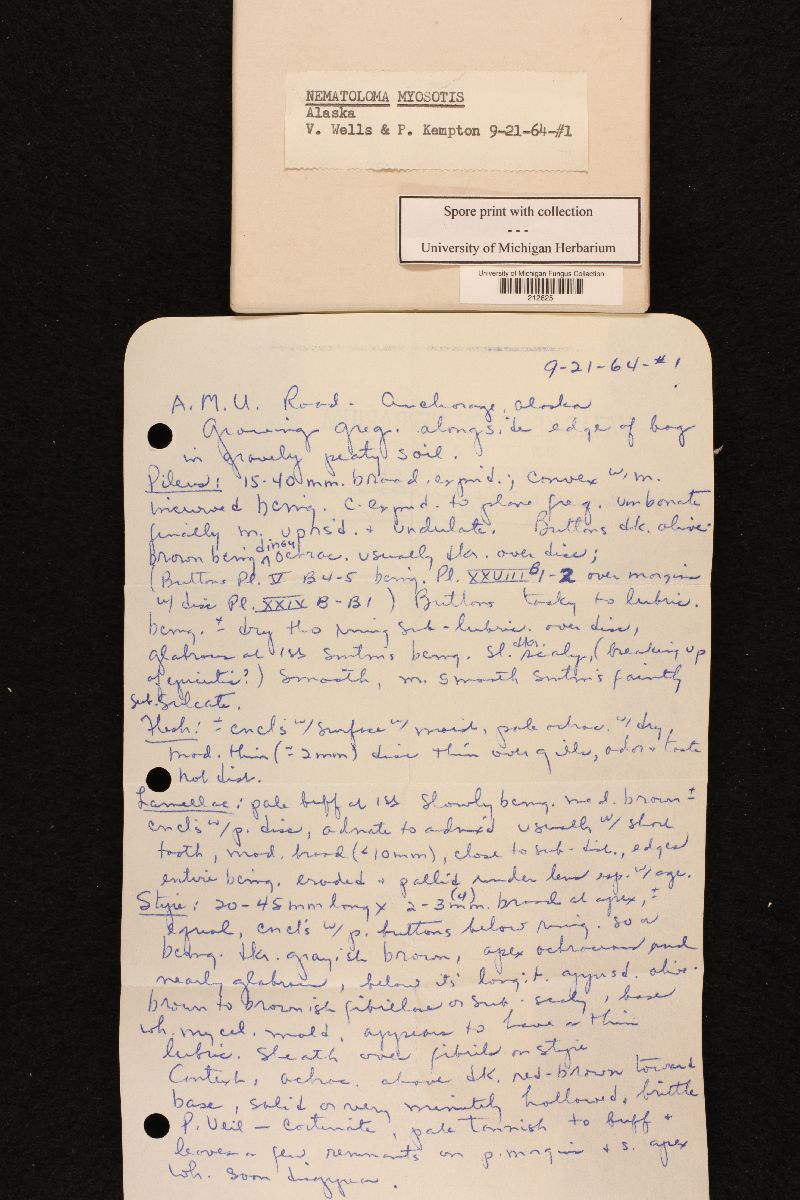 NEMATOLOMA MYOSOTIS
Alaska
V. Wells & P. Kempton 9-21-64-#1
Spore print with collection
- - -
University of Michigan Herbarium
University of Michigan Fungus Collection
212625
9-21-64-#1
A.M.U. Road - Anchorage, Alaska
Growing greg. alongside edge of bog
in gravely peaty soil.
Pileus: 15-40 mm. broad, expnd.; convex w/ m.
incurved bcmg. c. expnd. to plane freq. umbonate
finally m. uprs'd. + undulate. Buttons dk. olive-
brown being dingy ochrac. usually dkr. over disc;
(Buttons Pl. V B4-5 bcmg. Pl. XXVIII B1-2 over margin
w/ disc Pl. XXIX B-B1) Buttons tacky to lubric.
bcmg. ± dry tho rmng sub-lubric. over disc,
glabrous at 1ss smtms bcmg. sl. dkr. scaly, (breaking up
of epicutis?) Smooth, m. smooth smtm's faintly
sub-sulcate.
Flesh: ± cncl's w/ surface w/ moist, pale ochrac. w/ dry,
mod. thin (± 2mm) disc thin over gills, odor + taste
not dist.
Lamellae: pale buff at 1ss slowly bcmg. med. brown ±
cncl's w/ p. disc, adnate to adnex'd usually w/ short
tooth, mod. broad (<10mm), close to sub-dist., edges
entire bcmg. eroded + pallid under lens esp. w/ age.
Stipe: 20-45 mm long x 2-3 (4) mm. broad at apex, ±
equal, cncl's w/ p. buttons below rmng. so or
bcmg. dkr. grayish brown, apex ochraceous and
nearly glabrous, below its longit. appresd. olive-
brown to brownish fibrillose or sub-scaly, base
wh. mycel. mold, appears to have a thin
lubric. sheath over fibrils on stipe
Context, ochrac. above dk. red-brown toward
base, solid or very minutely hollowed, brittle
P. Veil - cortinate, pale tannish to buff +
leaves a few remnants on p. margin + s. apex
wh. soon disappear.